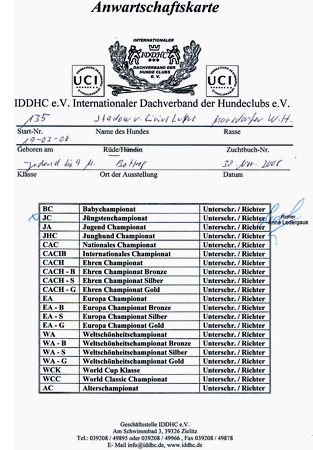 Anwartschaftskarte
INTERNATIONALER
IDDHC
DACHVERBAND DER
HUNDE CLUBS
E.V.
UCI
UCI
IDDHC e.V. Internationaler Dachverband der Hundeclubs e.V.
135 Shadow v. W. H.
Start-Nr. Name des Hundes Rasse
19-03-08
Geboren am Rüde/Hündin Zuchtbuch-Nr.
Jugend Bottrop 30. Nov. 2008
Klasse Ort der Ausstellung Datum
BC Babychampionat Unterschr. / Richter
x JC Jüngstenchampionat Unterschr. / Richter
Richter
JA Jugend Championat Unterschr. / Richter
JHC Junghund Championat Unterschr. / Richter
CAC Nationales Championat Unterschr. / Richter
CACIB Internationales Championat Unterschr. / Richter
CACH Ehren Championat Unterschr. / Richter
CACH - B Ehren Championat Bronze Unterschr. / Richter
CACH - S Ehren Championat Silber Unterschr. / Richter
CACH - G Ehren Championat Gold Unterschr. / Richter
EA Europa Championat Unterschr. / Richter
EA - B Europa Championat Bronze Unterschr. / Richter
EA - S Europa Championat Silber Unterschr. / Richter
EA - G Europa Championat Gold Unterschr. / Richter
WA Weltschönheitschampionat Unterschr. / Richter
WA - B Weltschönheitschampionat Bronze Unterschr. / Richter
WA - S Weltschönheitschampionat Silber Unterschr. / Richter
WA - G Weltschönheitschampionat Gold Unterschr. / Richter
WCK World Cup Klasse Unterschr. / Richter
WCC World Classic Championat Unterschr. / Richter
AC Alterschampionat Unterschr. / Richter
Geschäftsstelle IDDHC e.V.
Am Schwimmbad 3, 39326 Zielitz
Tel.: 039208 / 49895 oder 039208 / 49966 , Fax 039208 / 49878
E- Mail info@iddhc.de, www.iddhc.de